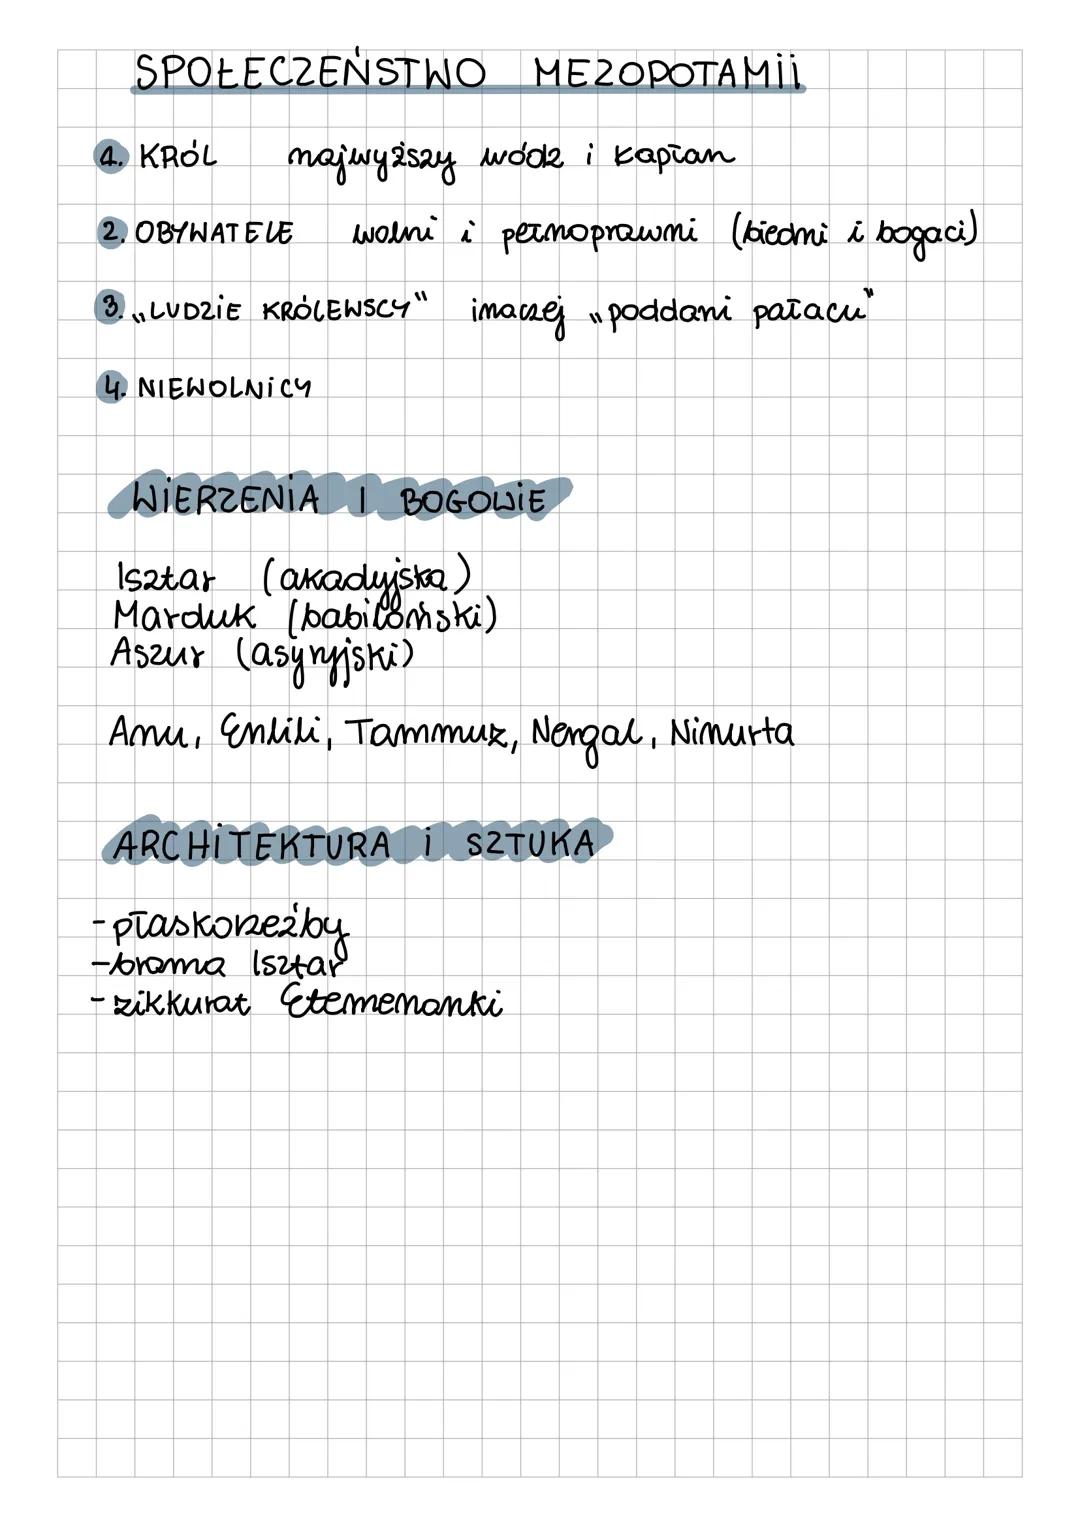 SPOŁECZEŃSTWO MEZOPOTAMII
1. KRÓL najwyższy wódz i kapłan
2. OBYWATELE wolni i pełnoprawni (biedni i bogaci)
3. „LUDZIE KRÓLEWSCY" inaczej „poddani pałacu"
4. NIEWOLNICY
WIERZENIA I BOGOWIE
Isztar (akadyjska)
Marduk (babiloński)
Aszur (asyryjski)
Anu, Enlili, Tammuz, Nergal, Ninurta
ARCHITEKTURA i SZTUKA
- płaskorzeźby
- brama Isztar
- zikkurat Etemenanki